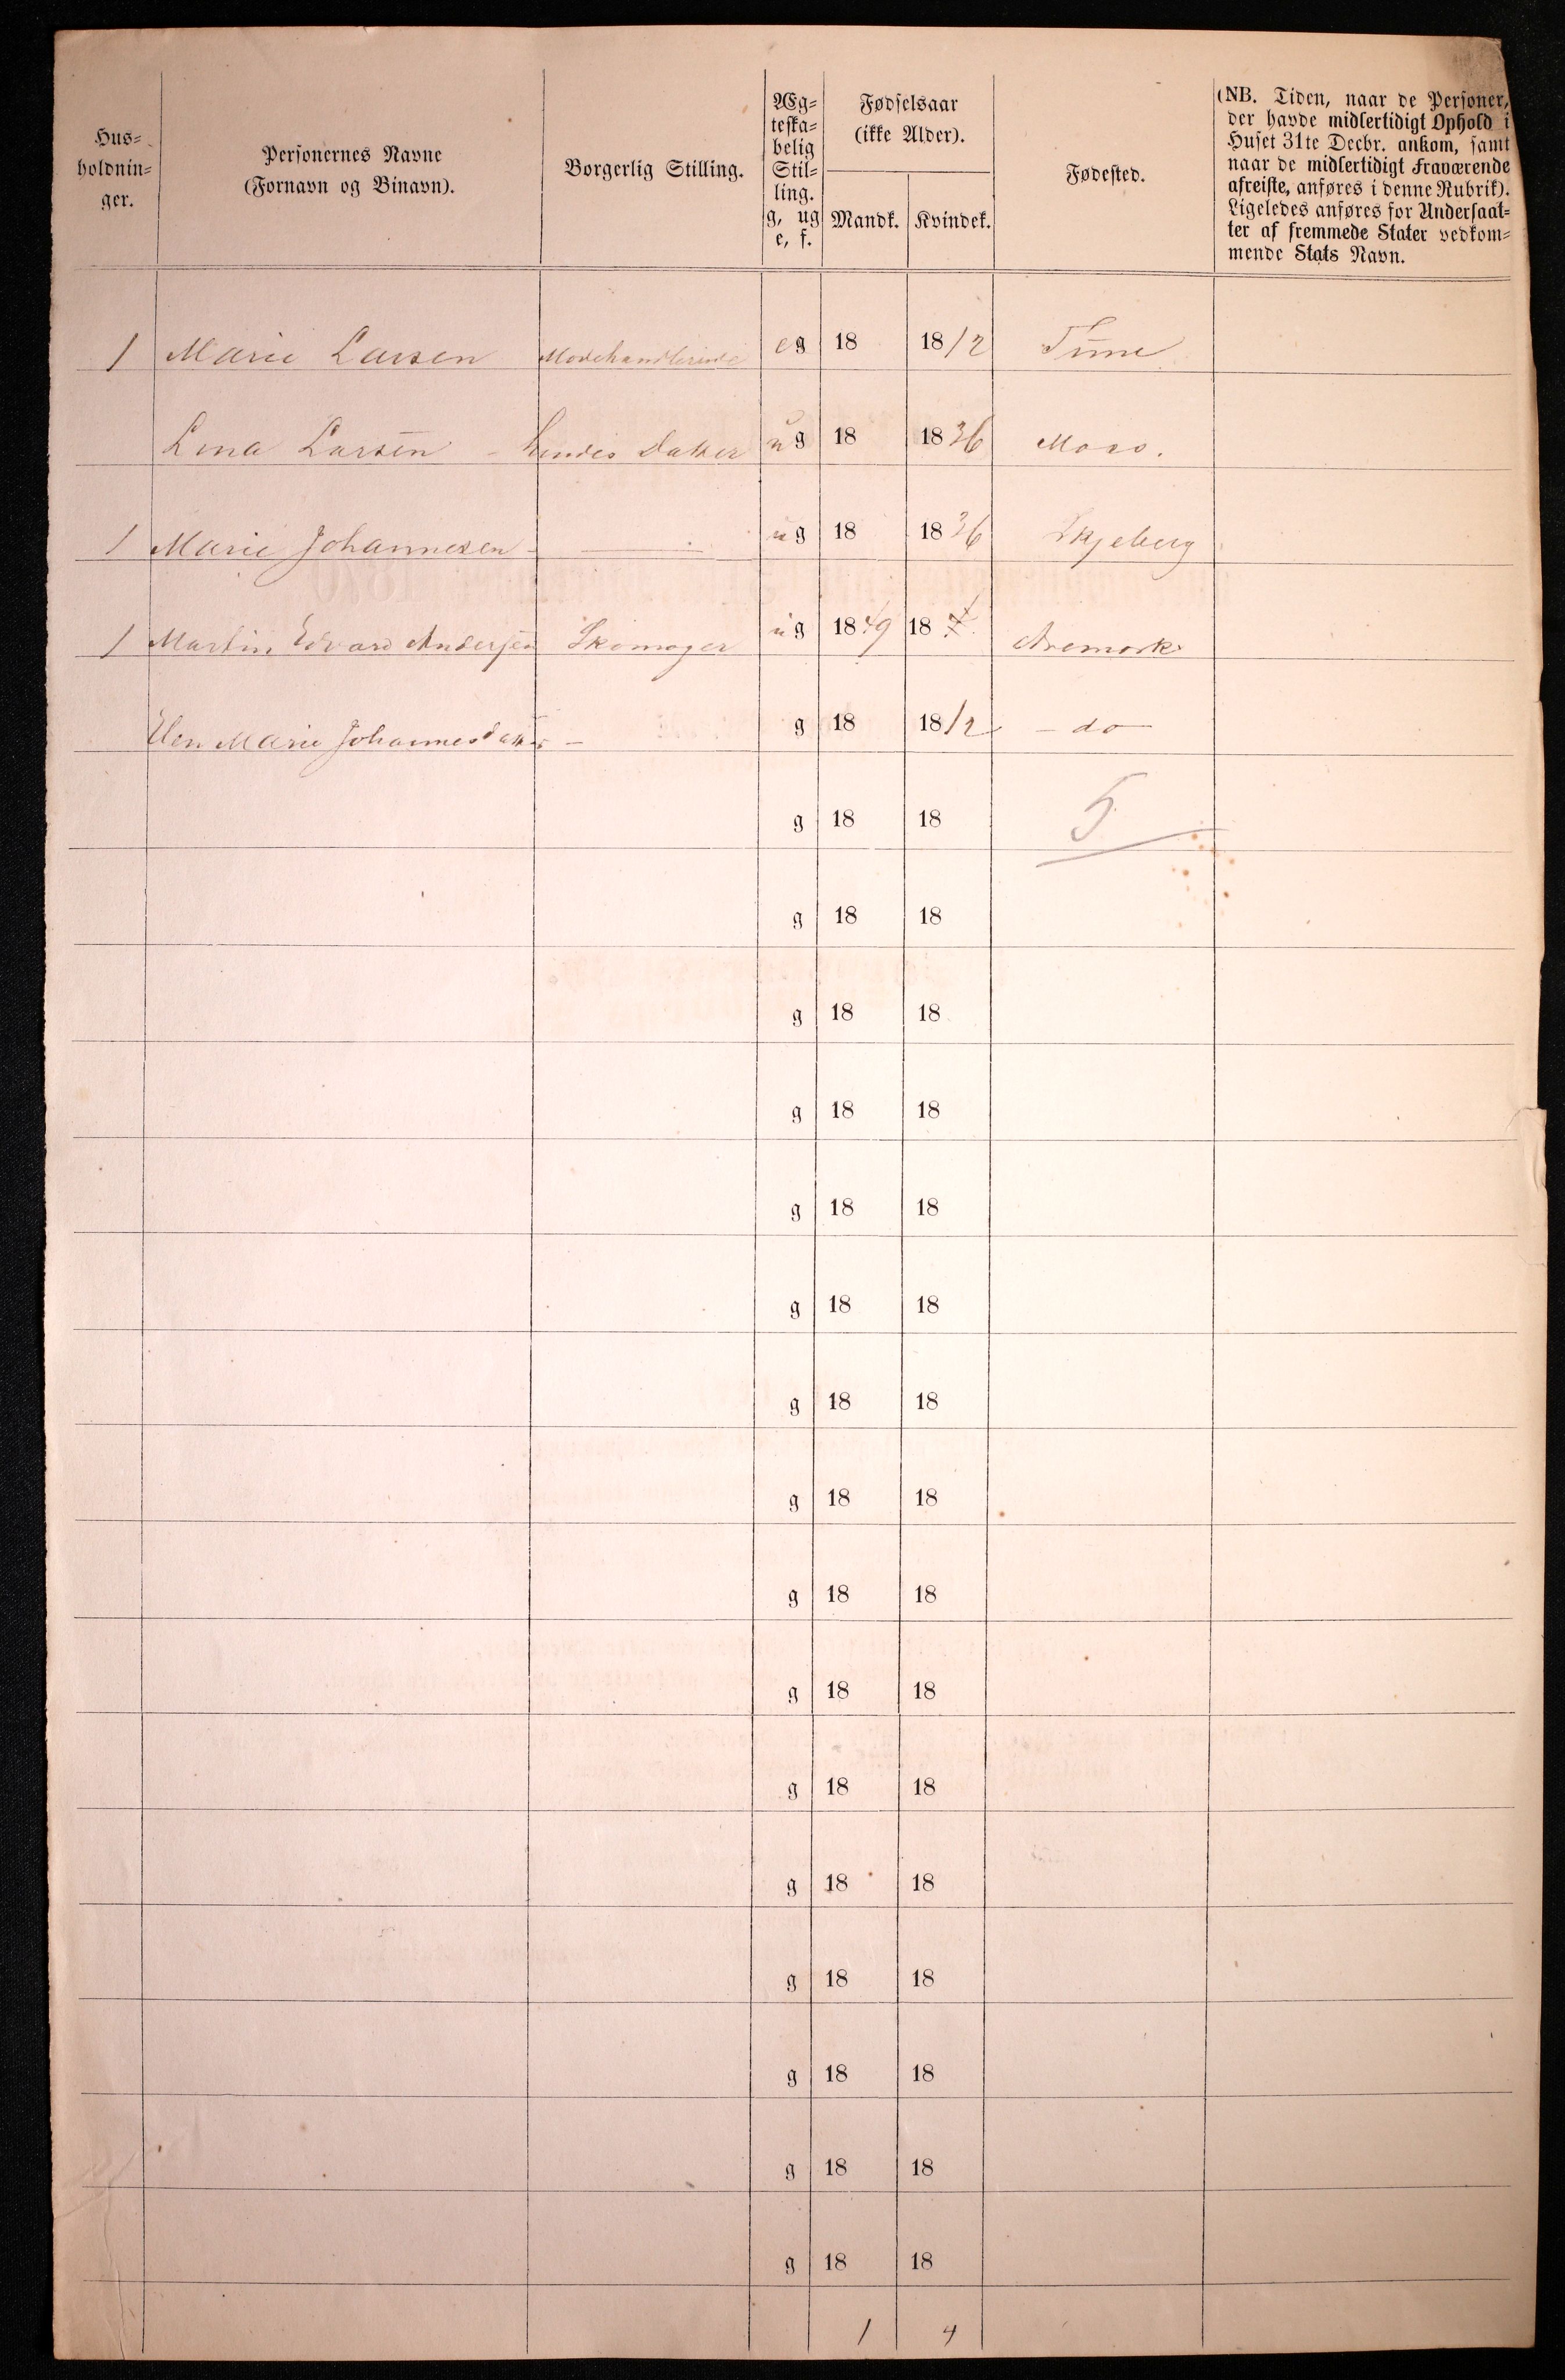 Hus=
holdnin=
ger.
Personernes Navne
(Fornavn og Binavn).
Borgerlig Stilling.
Æg=
teska=
belig
Stil=
ling.
g, ug
e, f.
Fødselsaar
(ikke Alder).
Mandk. Kvindek.
Fødested.
(NB. Tiden, naar de Personer,
der havde midlertidigt Ophold i
Huset 31te Decbr. ankom, samt
naar de midlertidigt Fraværende
afreiste, anføres i denne Rubrik).
Ligeledes anføres for Undersaat=
ter af fremmede Stater vedkom=
mende Stats Navn.
1 Marie Larsen Modehandlerinde eg 18 1812 Tune
Lina Larsen - Hendes Datter ug 18 1836 Moss.
1 Marie Johannesen - — ug 18 1836 Skjeberg
1 Martin Edvard Andersen Skomager ug 1849 18 Aremark
Elen Marie Johannesdatter - g 18 1812 - do -
g 18 18 5
g 18 18
g 18 18
g 18 18
g 18 18
g 18 18
g 18 18
g 18 18
g 18 18
g 18 18
g 18 18
g 18 18
g 18 18
g 18 18
g 18 18
g 18 18
1 4